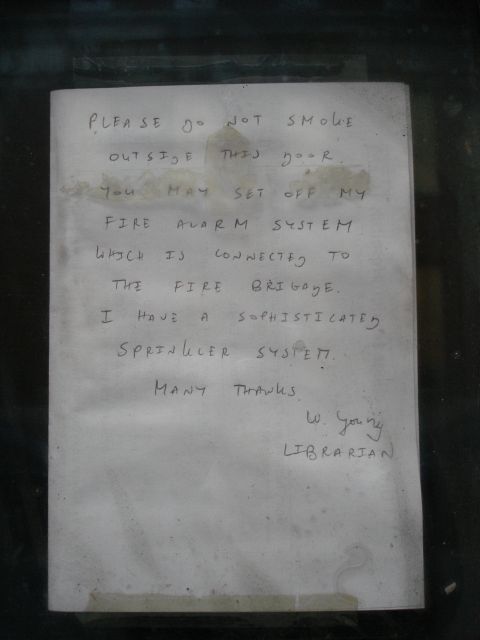 PLEASE DO NOT SMOKE
OUTSIDE THIS DOOR.
YOU MAY SET OFF MY
FIRE ALARM SYSTEM
WHICH IS CONNECTED TO
THE FIRE BRIGADE.
I HAVE A SOPHISTICATED
SPRINKLER SYSTEM.
MANY THANKS.
W. Young
LIBRARIAN